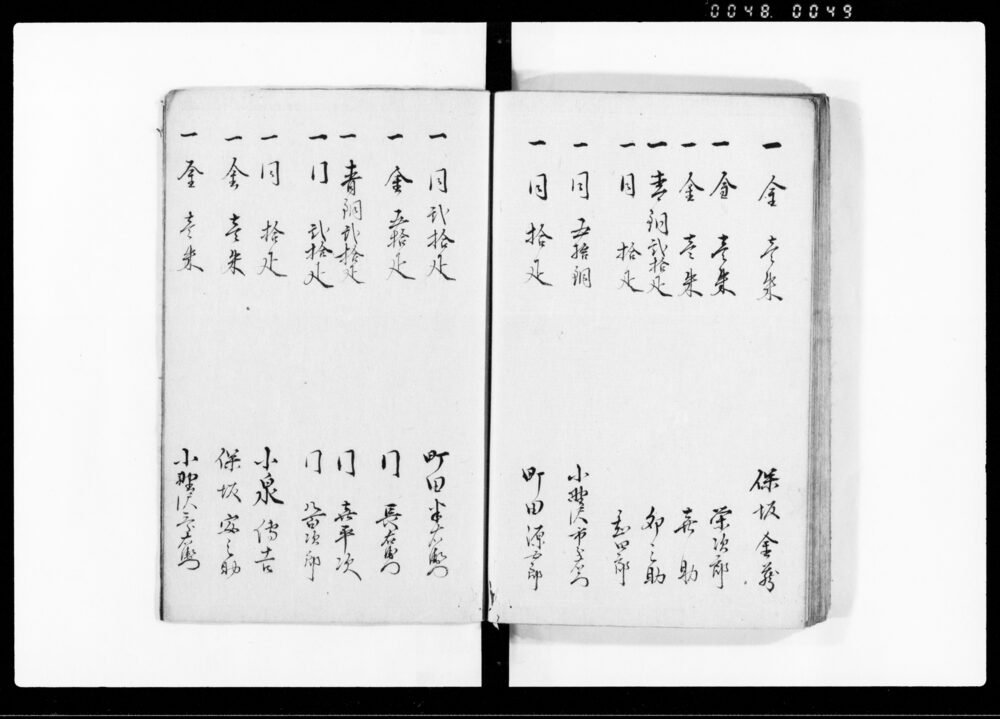 0048. 0049
一 金 壱朱 保坂金蔵
一 金 壱朱 栄次郎
一 金 壱朱 喜助
一 青銅弐拾疋 卯之助
一 同 拾疋 四郎
一 同 五拾銅 小野沢市左衛門
一 同 拾疋 町田源五郎
一 同 弐拾疋 町田半右衛門
一 金 五拾疋 同 長右衛門
一 青銅弐拾疋 同 喜平次
一 同 弐拾疋 同 次郎
一 同 拾疋 小泉傳吉
一 金 壱朱 保坂安之助
一 金 壱朱 小野沢右衛門